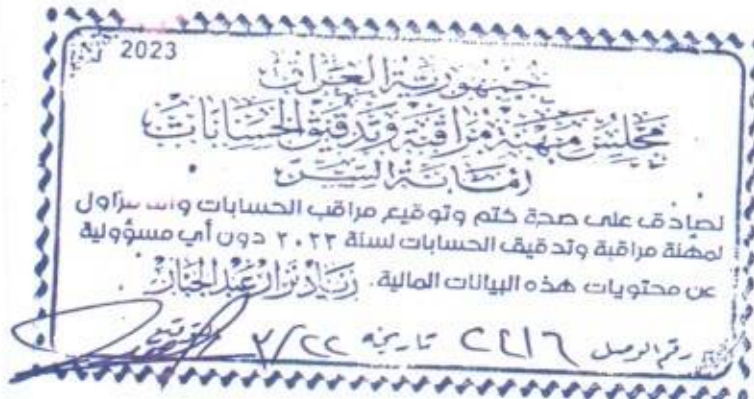 2023
جمهورية العراق
مجلس مهنة مراقبة وتدقيق الحسابات
امانة السر
نصادق على صحة ختم وتوقيع مراقب الحسابات مزاول
لمهنة مراقبة وتدقيق الحسابات لسنة ٢٠٢٣ دون أي مسؤولية
عن محتويات هذه البيانات المالية. زياد نزار عبد الجبار
رقم الوصل تاريخه ٣/٢٢
التوقيع